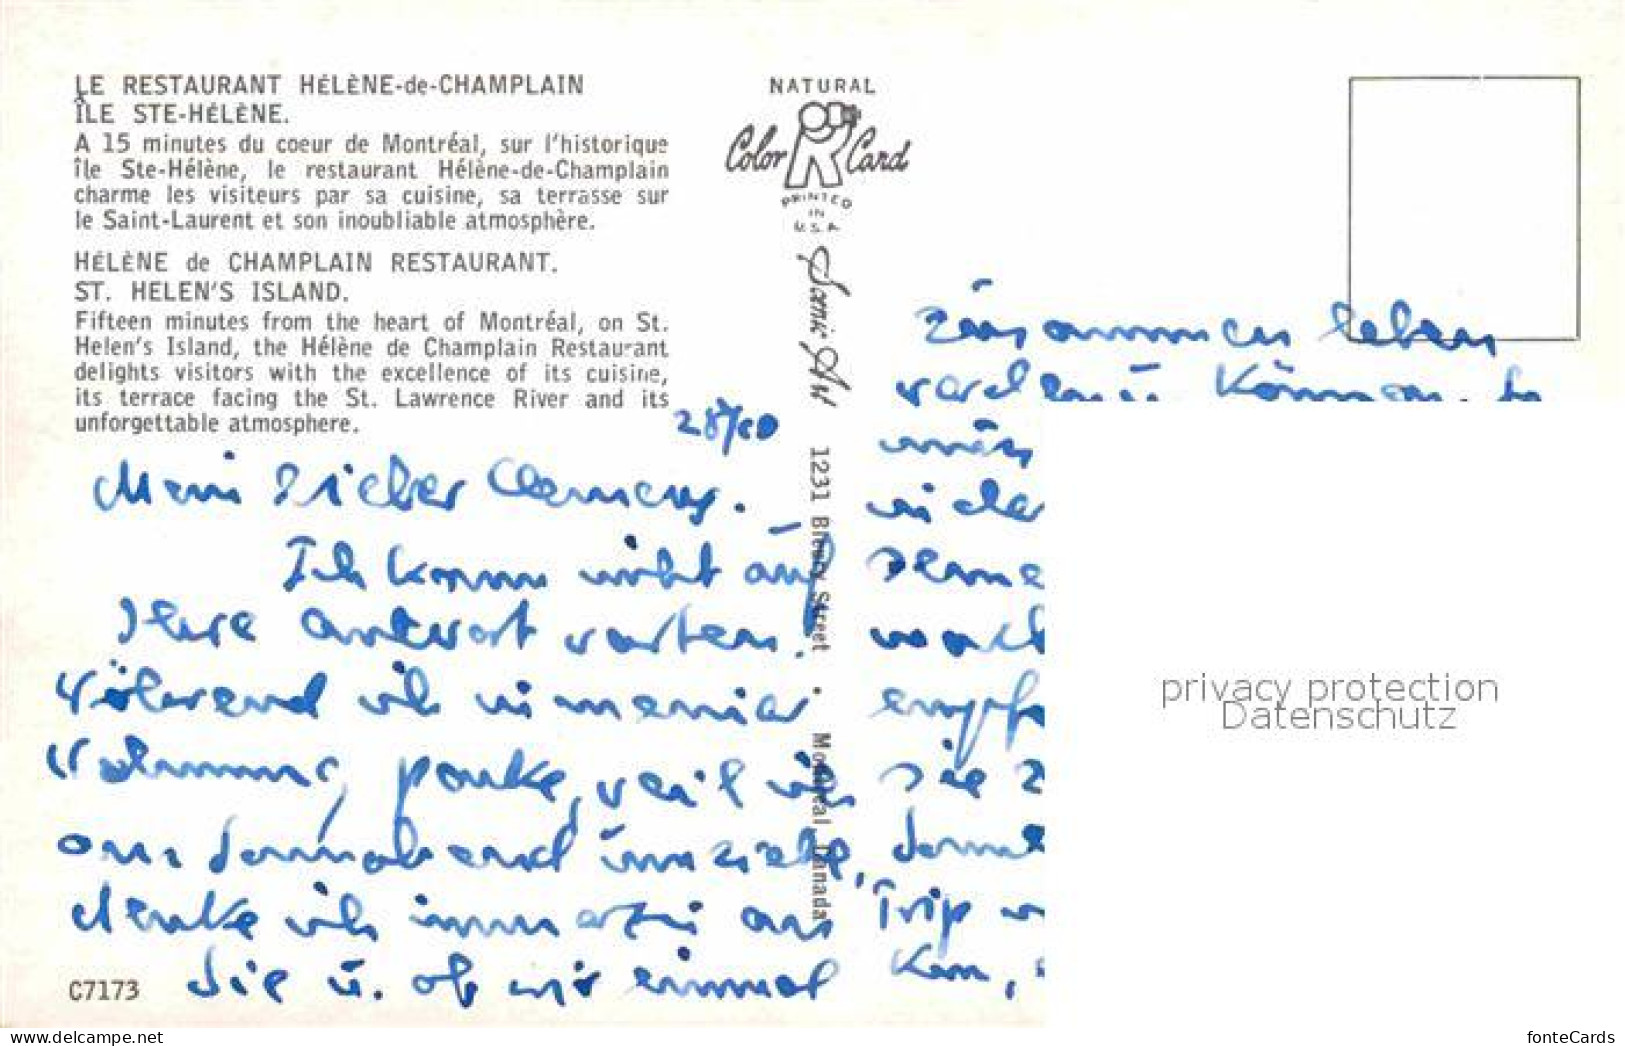 LE RESTAURANT HÉLÈNE-de-CHAMPLAIN
ÎLE STE-HÉLÈNE.
A 15 minutes du coeur de Montréal, sur l'historique
île Ste-Hélène, le restaurant Hélène-de-Champlain
charme les visiteurs par sa cuisine, sa terrasse sur
le Saint-Laurent et son inoubliable atmosphère.
HÉLÈNE de CHAMPLAIN RESTAURANT.
ST. HELEN'S ISLAND.
Fifteen minutes from the heart of Montréal, on St.
Helen's Island, the Hélène de Champlain Restaurant
delights visitors with the excellence of its cuisine,
its terrace facing the St. Lawrence River and its
unforgettable atmosphere.
Mein lieber Clemens.
Ich kann nicht auf
Ihre Antwort warten.
Während ich in meiner
Wohnung packe, weil ich
am Sonnabend umziehe,
denke ich immerzu an
Sie u. ob wir einmal
C7173
NATURAL
Color Card
PRINTED
IN
U.S.A.
1231 Street Montreal Canada
zusammen leben
werden können.
in der
Seine
Sie
Trip
kan,
privacy protection
Datenschutz
www.delcampe.net
fonteCards